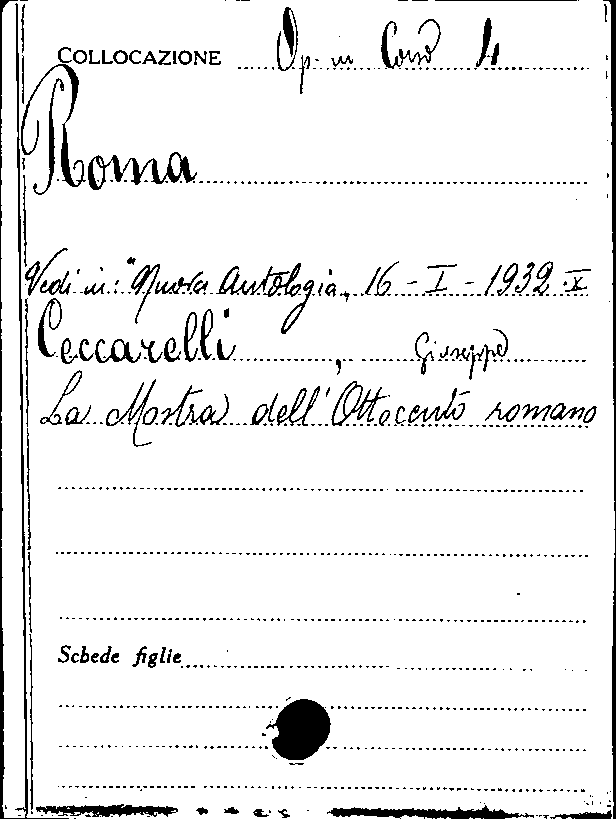 COLLOCAZIONE Op. in Corso 4
Roma
Vedi in: "Nuova Antologia„ 16 - I - 1932 . X
Ceccarelli , Giuseppe
La Mostra dell'Ottocento romano
Schede figlie